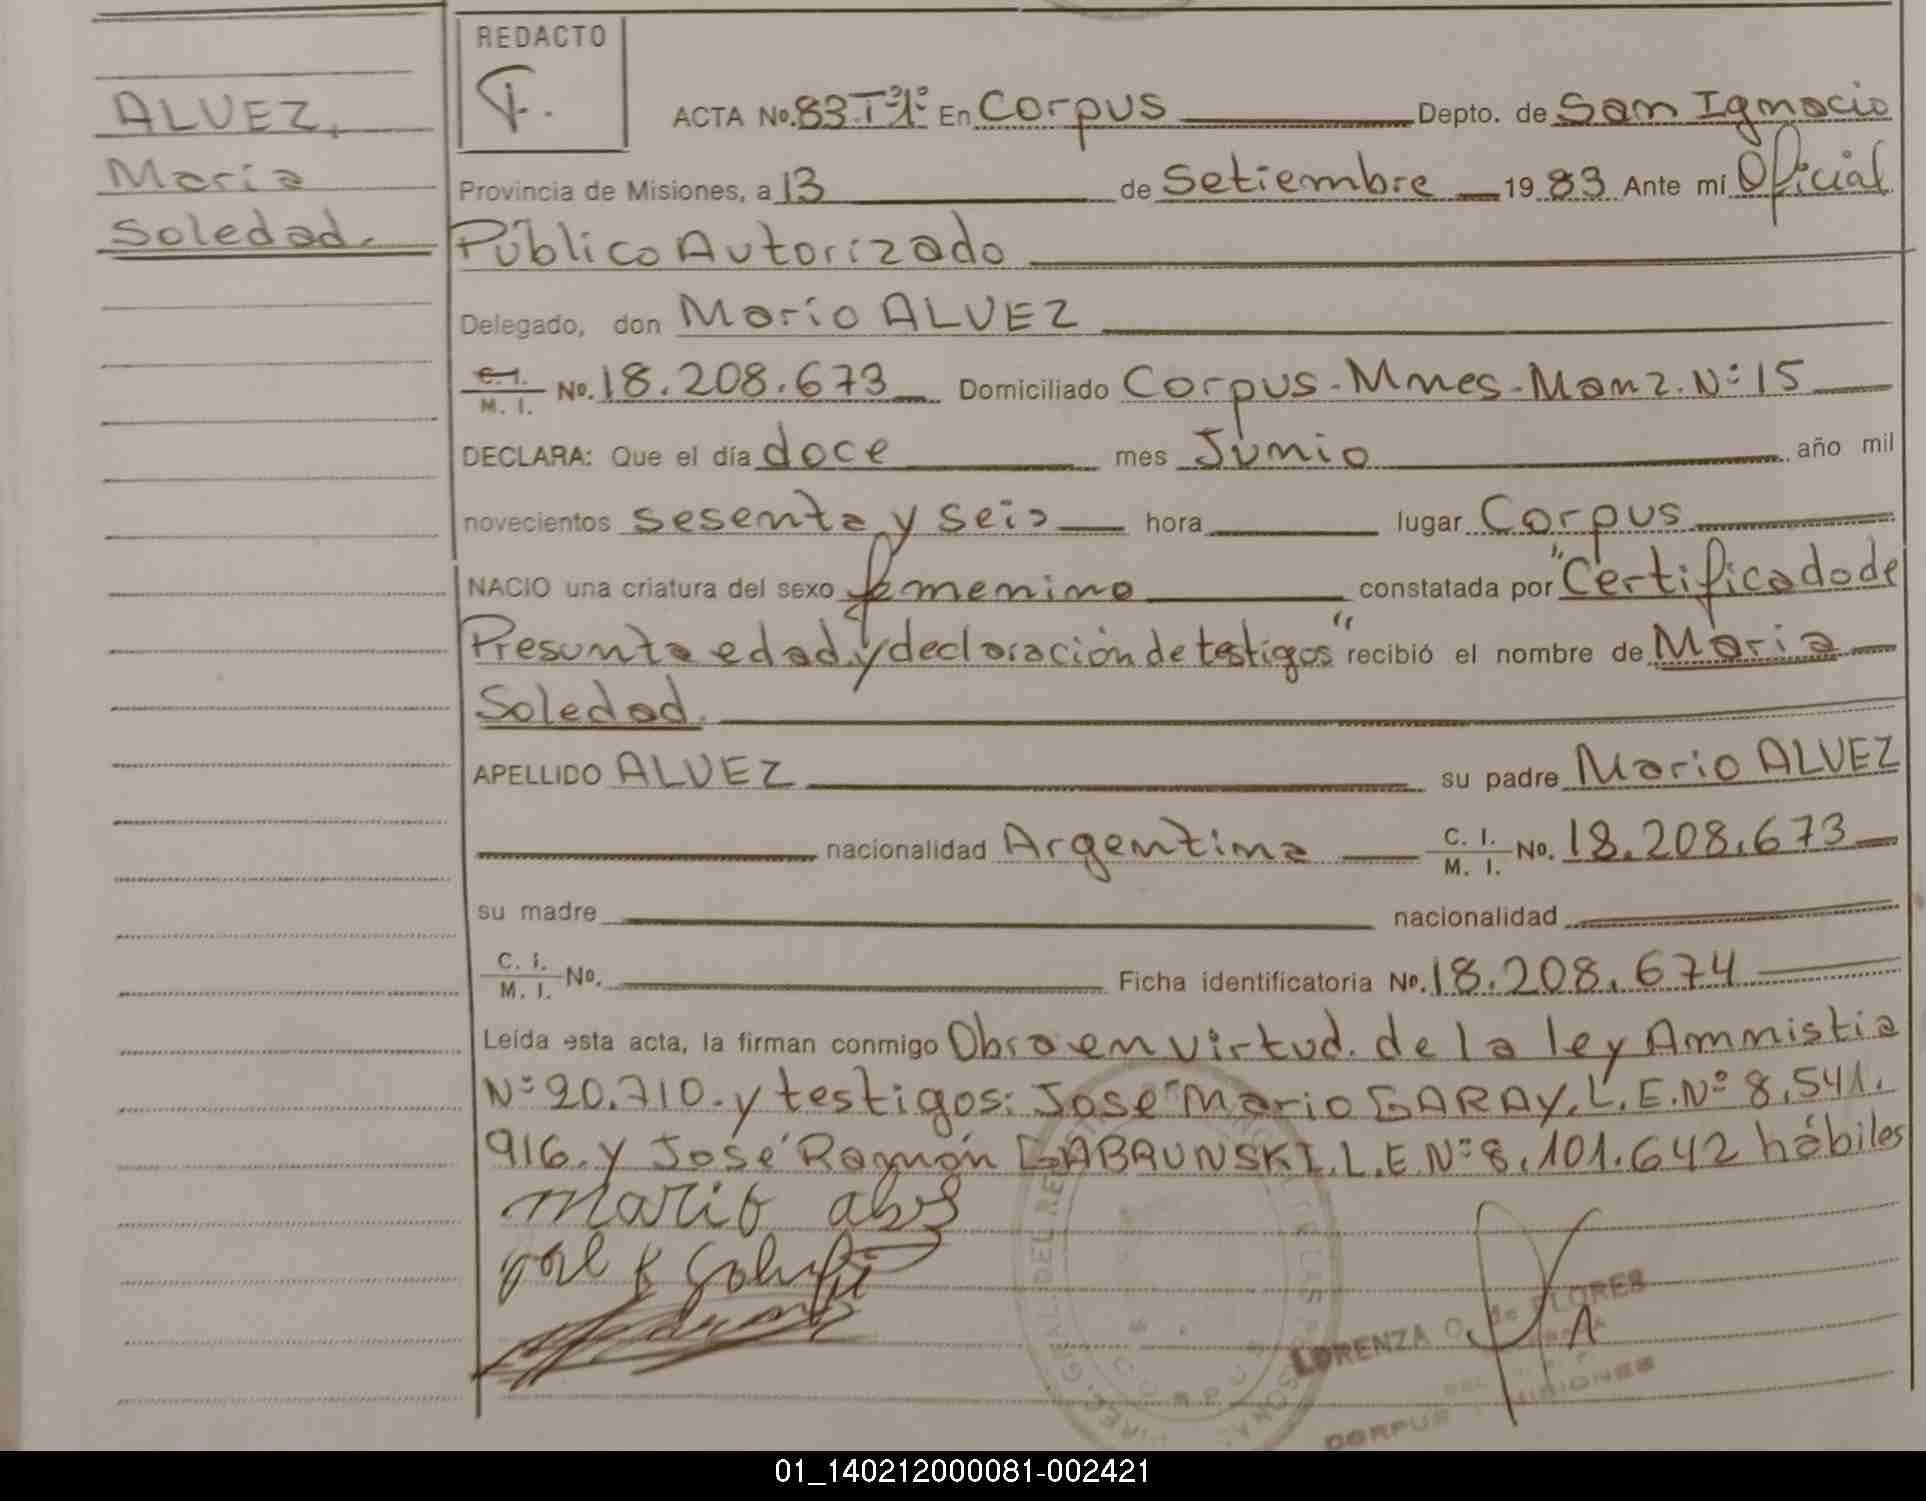 REDACTO
F.
ALVEZ,
María
Soledad.
ACTA No. 83. Tº 1º En Corpus Depto. de San Ignacio
Provincia de Misiones, a 13 de Setiembre 19 83 Ante mí Oficial
Público Autorizado
Delegado, don Mario ALVEZ
C. I. / M. I. No. 18.208.673 Domiciliado Corpus-Mnes-Manz. Nº 15
DECLARA: Que el día doce mes Junio año mil
novecientos sesenta y seis hora lugar Corpus
NACIO una criatura del sexo femenino constatada por "Certificado de
Presunta edad y declaración de testigos" recibió el nombre de María
Soledad.
APELLIDO ALVEZ su padre Mario ALVEZ
nacionalidad Argentina C. I. / M. I. No. 18.208.673
su madre nacionalidad
C. I. / M. I. No. Ficha identificatoria No. 18.208.674
Leída esta acta, la firman conmigo Obra en virtud. de la ley Ammistia
Nº 20.710. y testigos: José Mario GARAY. L.E. Nº 8.541.
916. y José Ramón GABRUNSKI. L.E Nº 8.101.642 hábiles
Mario
LORENZA O. de FLORES
CORPUS MISIONES
CORPUS
01_140212000081-002421